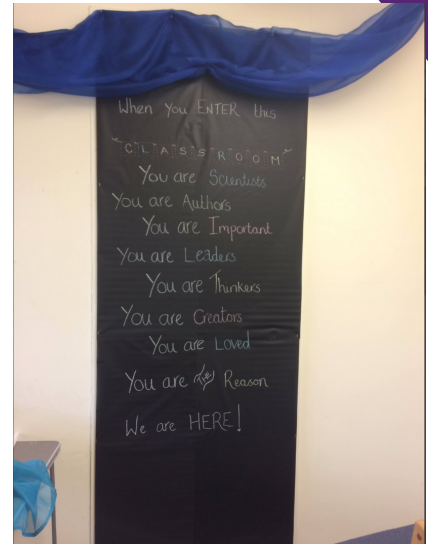 When You ENTER this
CLASSROOM
You are Scientists
You are Authors
You are Important
You are Leaders
You are Thinkers
You are Creators
You are Loved
You are The Reason
We are HERE!